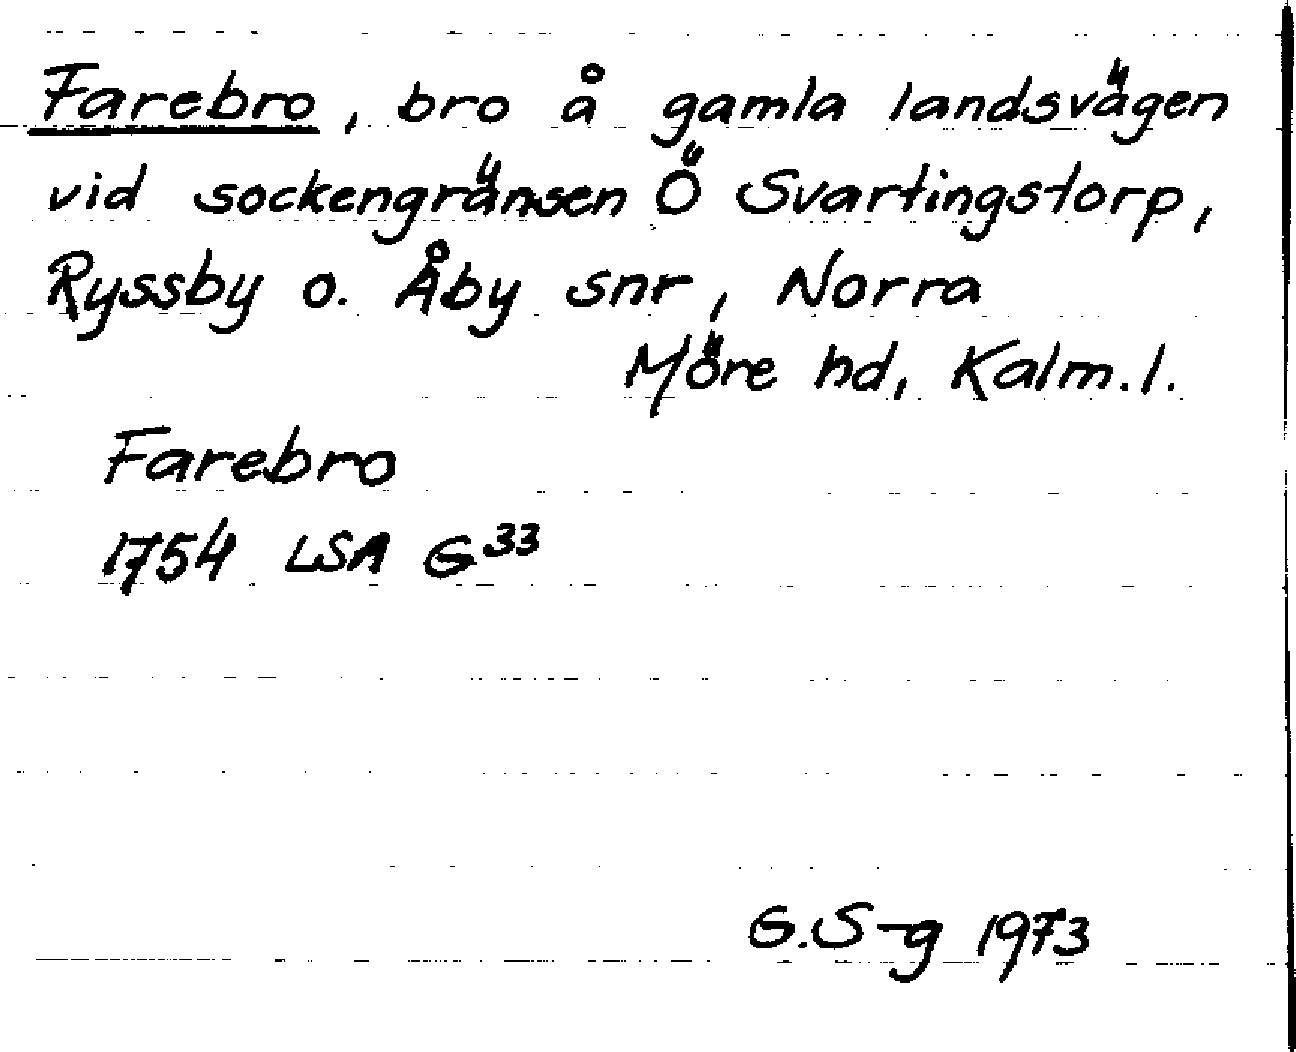 Farebro, bro å gamla landsvägen
vid sockengränsen Ö Svartingstorp,
Ryssby o. Åby snr, Norra
Möre hd, Kalm. l.
Farebro
1754 LSA G³³
G.S-g 1973